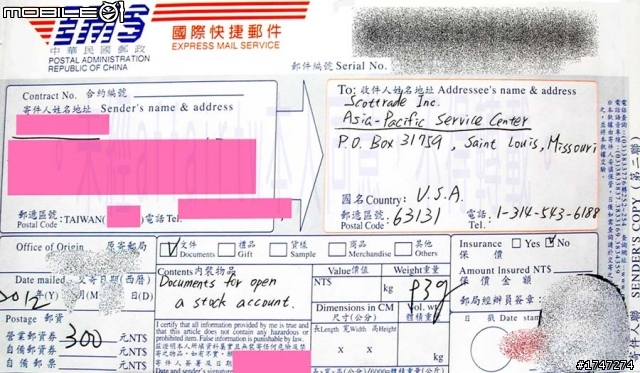 mobile01
EMS 國際快捷郵件
EXPRESS MAIL SERVICE
中華民國郵政
POSTAL ADMINISTRATION
REPUBLIC OF CHINA
郵件編號 Serial No.
Contract No. 合約編號
寄件人姓名地址 Sender's name & address
郵遞區號:TAIWAN( ) 電話 Tel.
Postal Code
To: 收件人姓名地址 Addressee's name & address
Scottrade Inc.
Asia-Pacific Service Center
P.O. Box 31759, Saint Louis, Missouri
國名 Country: U.S.A.
郵遞區號 63131 電話. 1-314-543-6188
Postal Code Tel.
SENDER'S COPY
Office of Origin 原寄郵局
文件 Documents
禮品 Gift
貨樣 Sample
商品 Merchandise
其他 Others
Insurance Yes No
保價
Date mailed 交寄日期(西曆)
2012 年(Y) 月(M) 日(D)
Contents 內裝物品
Documents for open
a stock account.
Value 價值
NT$
Weight 重量
kg 83g
Amount Insured NT$
保價金額
Dimensions in CM
尺寸(公分)
Vol. wt.
體積重
長Length 寬Width 高Height
X X
kg
郵局經辦員簽章:
日戳 Date stamp
Postage 郵資
營業郵資券 300 元NT$
自備郵資券 元NT$
自備郵票 元NT$
I certify that all information provided by me is true and
that this article does not contain any hazardous or
prohibited item. False information is punishable by law.
Date and sender's signature
#1747274